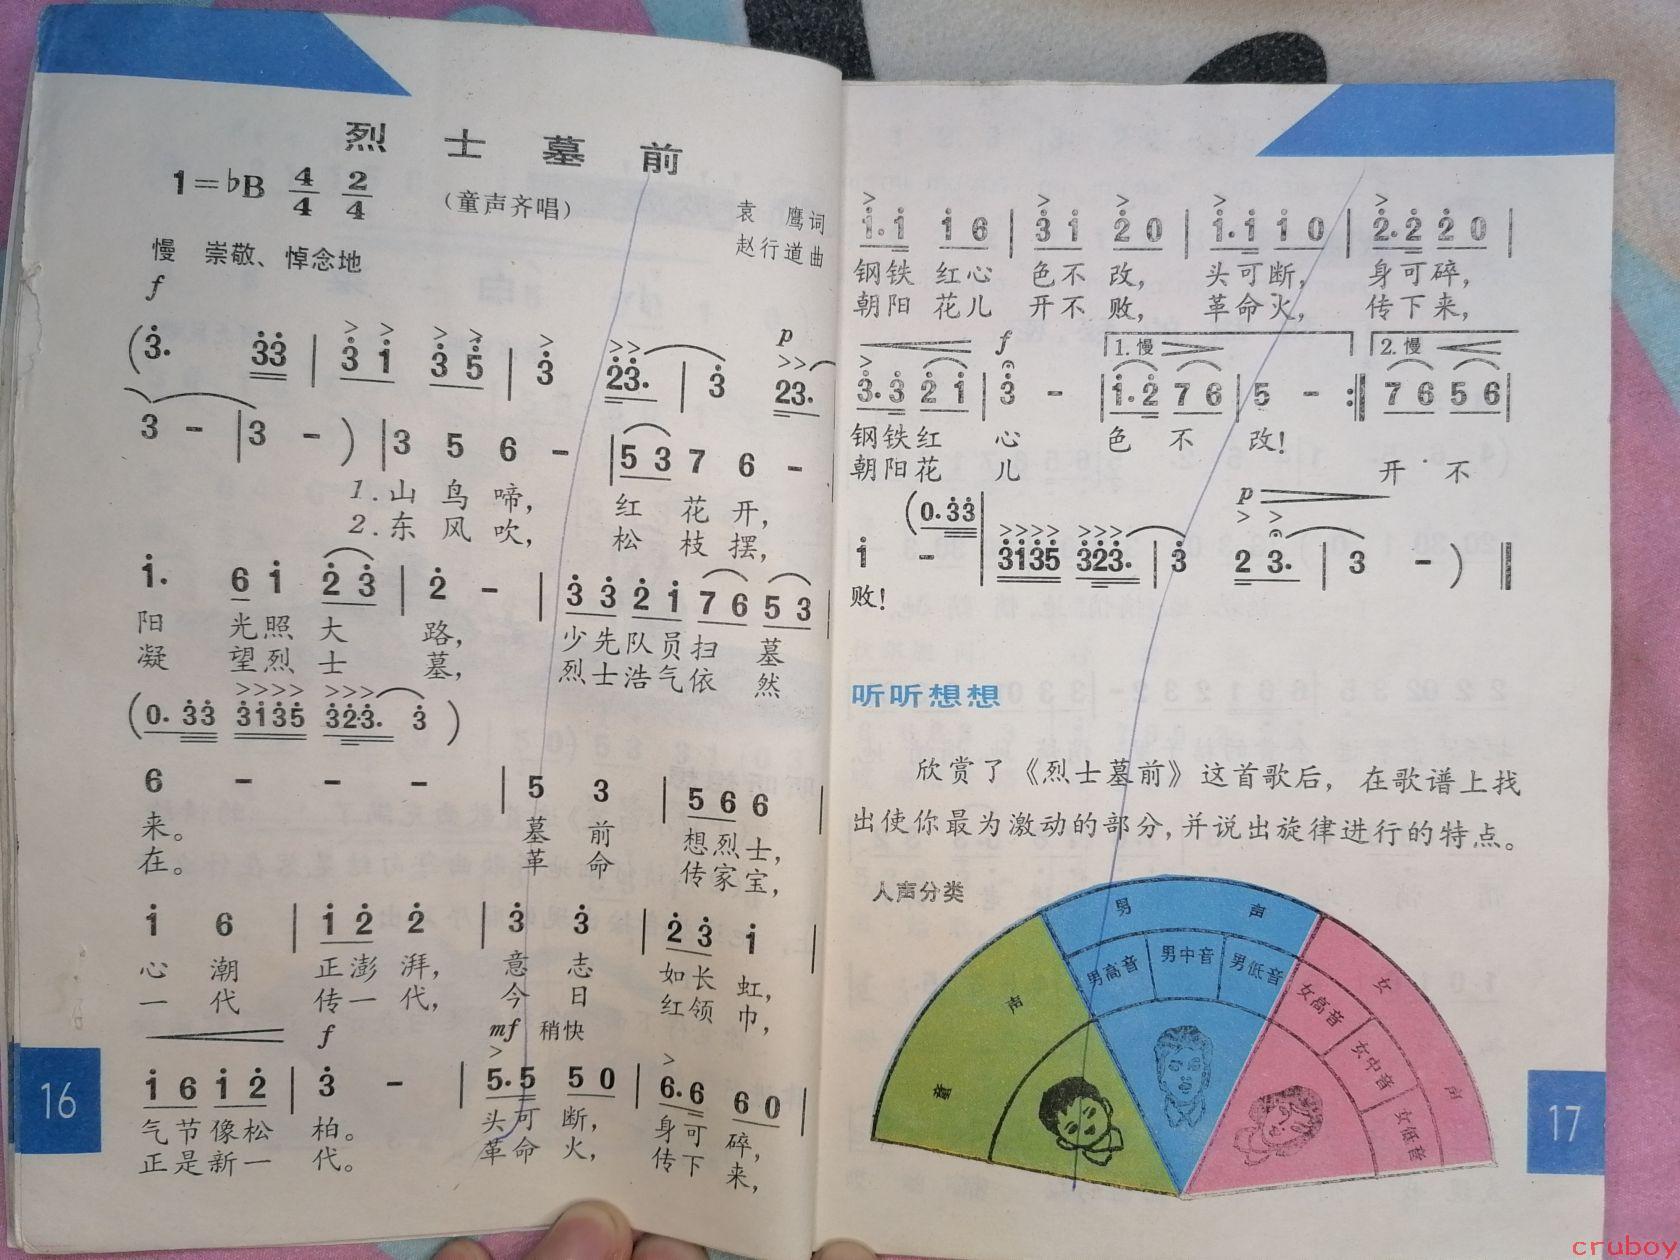 烈士墓前
1=♭B 4/4 2/4
（童声齐唱）
袁鹰词
赵行道曲
慢 崇敬、悼念地
f
p
(3̇. 3̇3̇ | 3̇ 1̇ 3̇ 5̇ | 3̇ 2̇3̇. | 3̇ 23.
3 - | 3 - ) | 3 5 6 - | 5 3 7 6 -
1.山鸟啼， 红花开，
2.东风吹， 松枝摆，
1̇. 6 1̇ 2̇ 3̇ | 2̇ - | 3̇ 3̇ 2̇ 1̇ 7 6 5 3
阳光照大路， 少先队员扫墓
凝望烈士墓， 烈士浩气依然
(0. 3̇3̇ 3̇1̇3̇5̇ 3̇2̇3̇. 3̇ )
6 - - - | 5 3 | 5 6 6 |
来。 墓前想烈士，
在。 革命传家宝，
1̇ 6 | 1̇ 2̇ 2̇ | 3̇ 3̇ | 2̇ 3̇ 1̇ |
心潮正澎湃， 意志如长虹，
一代传一代， 今日红领巾，
f mf 稍快
1̇ 6 1̇ 2̇ | 3̇ - | 5. 5 5 0 | 6. 6 6 0 |
气节像松柏。 头可断， 身可碎，
正是新一代。 革命火， 传下来，
16
1̇. 1̇ 1̇ 6 | 3̇ 1̇ 2̇ 0 | 1̇. 1̇ 1̇ 0 | 2̇. 2̇ 2̇ 0 |
钢铁红心色不改， 头可断， 身可碎，
朝阳花儿开不败， 革命火， 传下来，
f 1.慢 2.慢
3̇. 3̇ 2̇ 1̇ | 3̇ - | 1̇. 2̇ 7 6 | 5 - :‖ 7 6 5 6 |
钢铁红心色不改！
朝阳花儿 开不
p
(0. 3̇3̇
1̇ - | 3̇1̇3̇5̇ 3̇2̇3̇. | 3̇ 2 3. | 3 - ) ‖
败！
听听想想
欣赏了《烈士墓前》这首歌后，在歌谱上找
出使你最为激动的部分，并说出旋律进行的特点。
人声分类
童声
男声
男高音 男中音 男低音
女声
女高音 女中音 女低音
17
cruboy